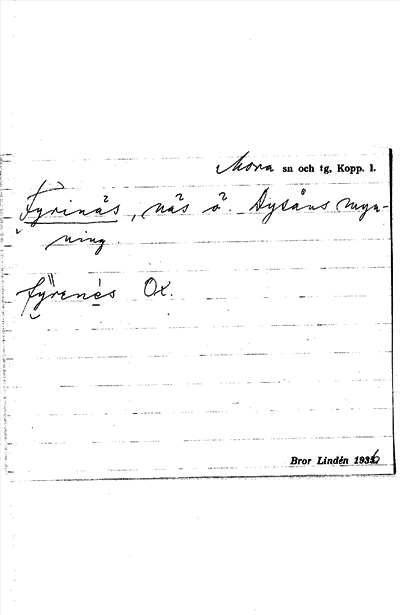 Mora sn och tg, Kopp. l.
Fyrinäs, näs ö. Aysåns myn-
ning.
fÿrenès Ox.
Bror Lindén 1936